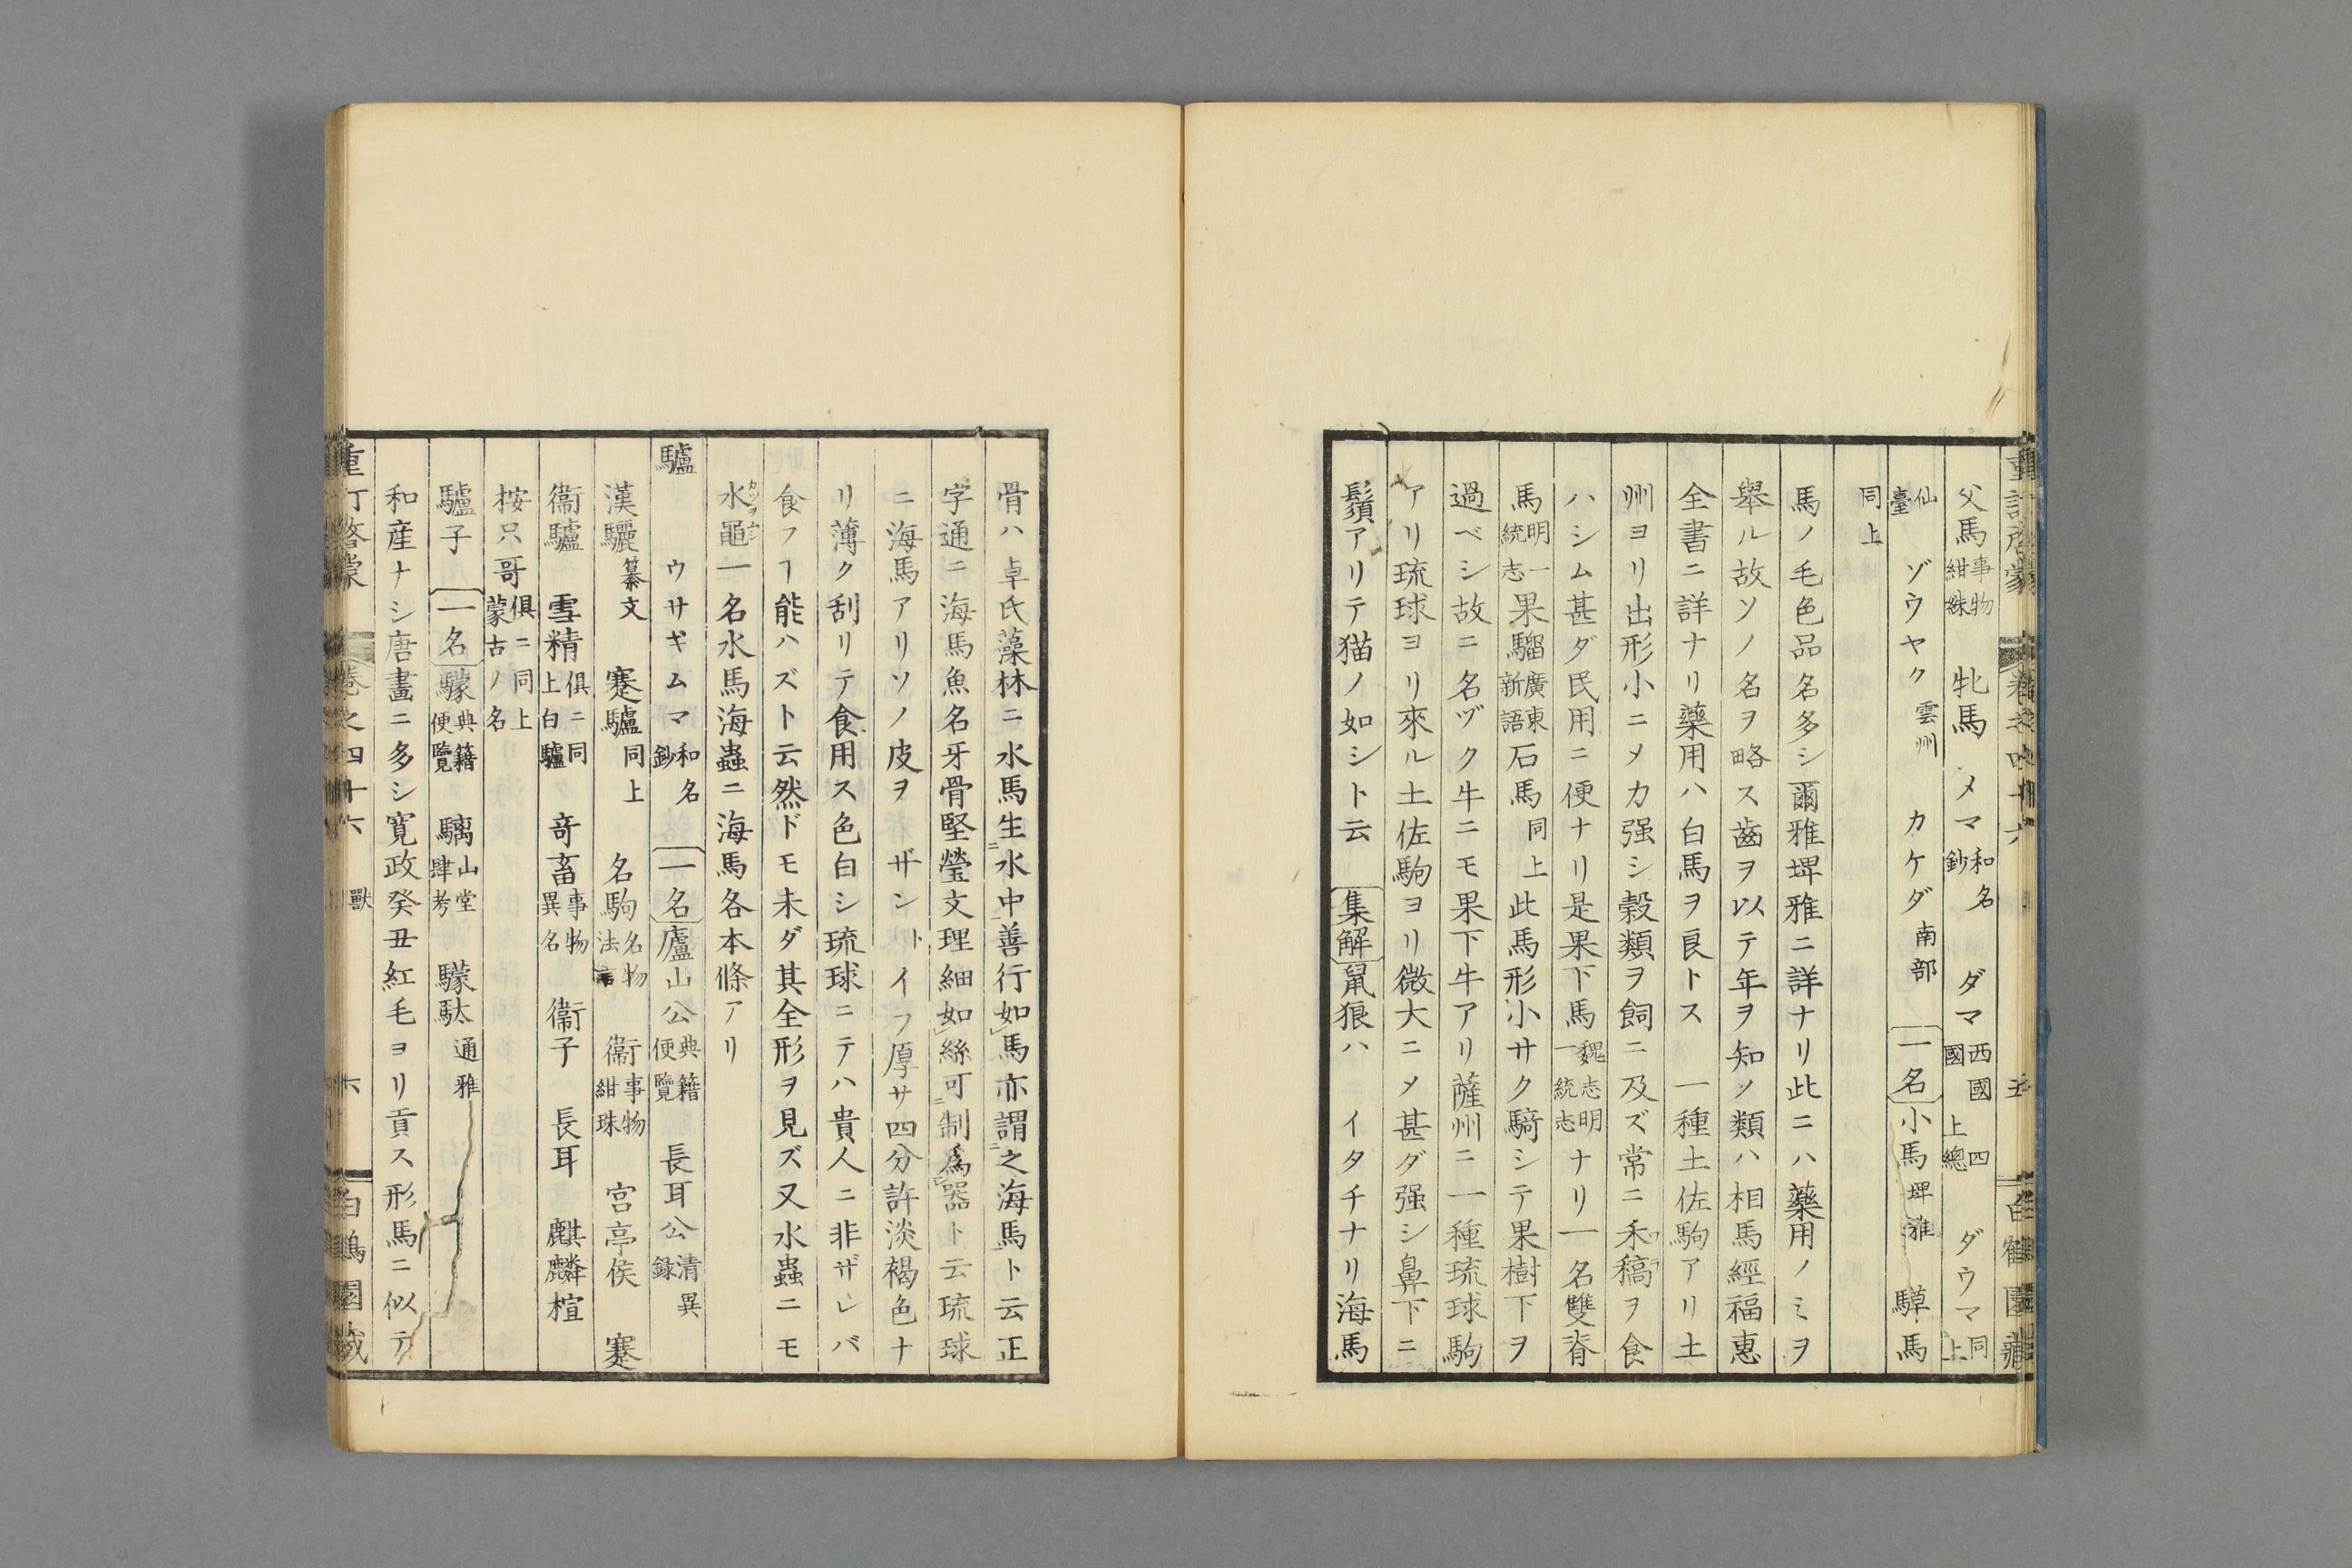 父馬事物紺珠 牝馬 メマ和名鈔 ダマ西國 四國上總 ダウマ同上
仙臺 ゾウヤク雲州 カケダ南部 一名 小馬埤雅 騲馬
同上
馬ノ毛色品名多シ爾雅埤雅ニ詳ナリ此ニハ藥用ノミヲ
舉ル故ソノ名ヲ略ス齒ヲ以テ年ヲ知ノ類ハ相馬經福惠
全書ニ詳ナリ藥用ハ白馬ヲ良トス 一種土佐駒アリ土
州ヨリ出形小ニメカ强シ穀類ヲ飼ニ及ズ常ニ禾稿ヲ食
ハシム甚ダ民用ニ便ナリ是果下馬魏志明一統志ナリ一名雙脊
馬明一統志 果騮廣東新語 石馬同上 此馬形小サク騎シテ果樹下ヲ
過ベシ故ニ名ヅク牛ニモ果下牛アリ薩州ニ一種琉球駒
アリ琉球ヨリ來ル土佐駒ヨリ微大ニメ甚ダ强シ鼻下ニ
鬚アリテ猫ノ如シト云 集解 鼠狼ハ イタチナリ海馬
骨ハ卓氏藻林ニ水馬生水中善行如馬亦謂之海馬ト云正
字通ニ海馬魚名牙骨堅瑩文理細如絲可制爲器ト云琉球
ニ海馬アリソノ皮ヲ ザントイフ厚サ四分許淡褐色ナ
リ薄ク刮リテ食用ス色白シ琉球ニテハ貴人ニ非ザレバ
食フヿ能ハズト云然ドモ未ダ其全形ヲ見ズ又水蟲ニモ
水黽一名水馬海蟲ニ海馬各本條アリ
驢 ウサギムマ和名鈔 一名 廬山公典籍便覽 長耳公清異錄
漢驪纂文 蹇驢同上 名駒名物法言 衞事物紺珠 宮亭侯 蹇
衞驢 雪精俱ニ同上白驢 奇畜事物異名 衞子 長耳 麒麟楦
按只哥俱ニ同上蒙古ノ名
驢子 一名 驐典籍便覽 騳山堂肆考 驐馱通雅
和産ナシ唐畫ニ多シ寛政癸丑紅毛ヨリ貢ス形馬ニ似テ
獸
六